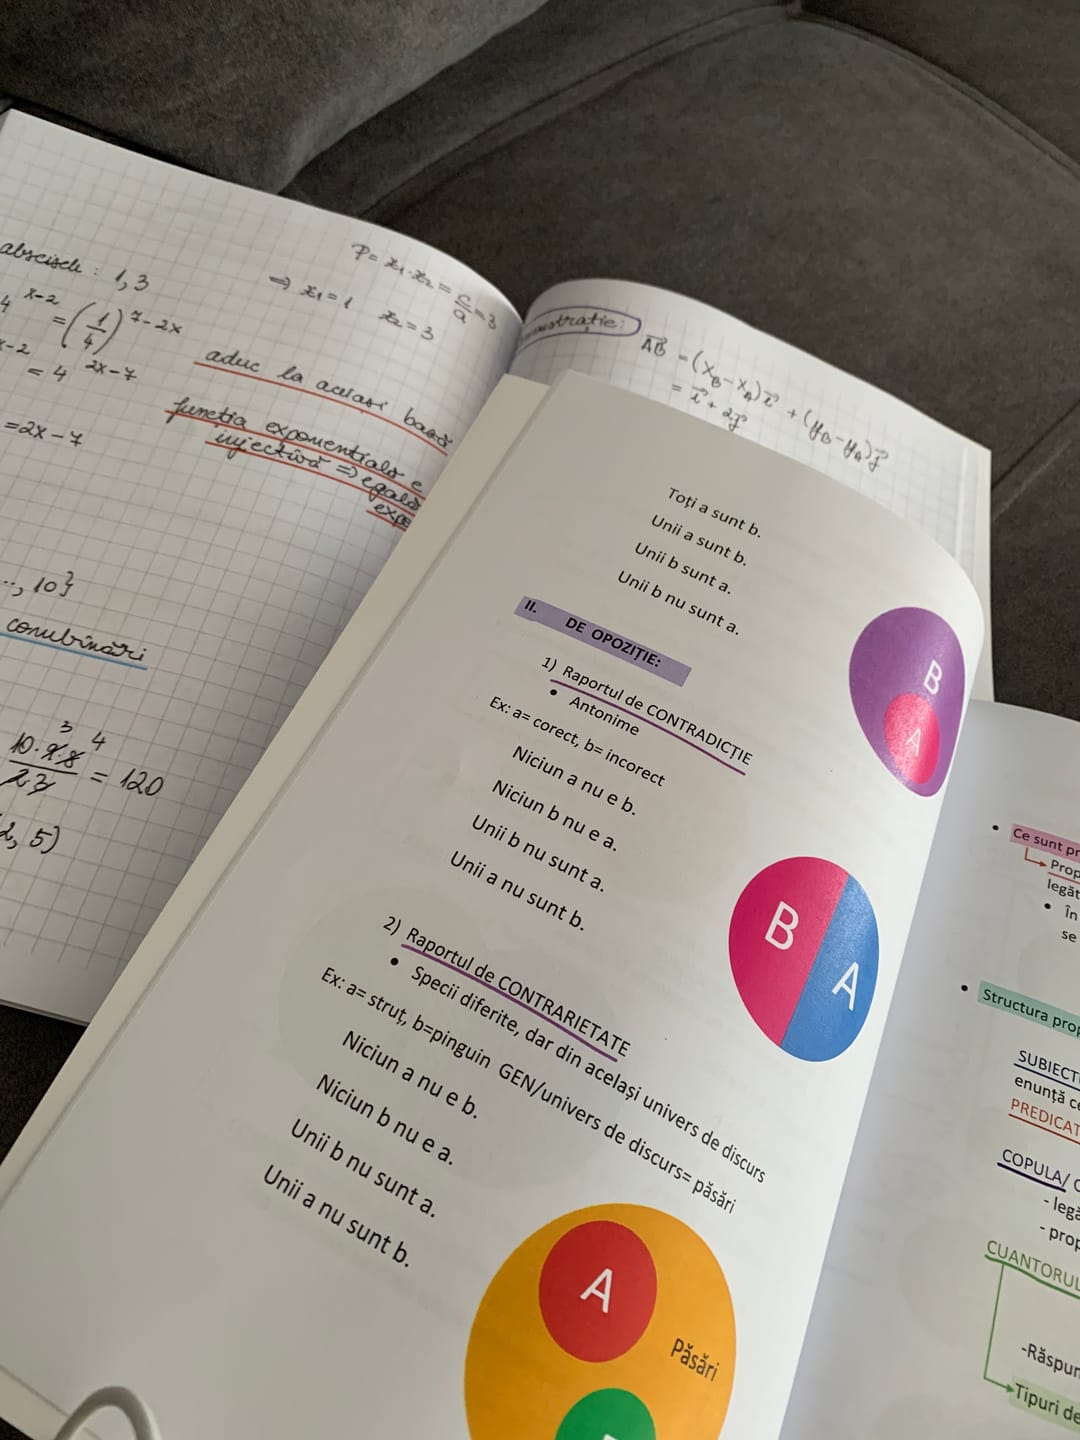 abscisele : 1, 3
P = x₁·x₂ = c/a = 3
⇒ x₁ = 1 x₂ = 3
4^(x-2) = (1/4)^(7-2x)
x-2 = 4^(2x-7)
aduc la aceiași bază
= 2x - 7
funcția exponențială e
injectivă ⇒ egală
..., 10}
combinări
10·9·8 / 2·3 = 120
3 4
2, 5)
AB = (x_B - x_A) i + (y_B - y_A) j
= i + 2j
Toți a sunt b.
Unii a sunt b.
Unii b sunt a.
Unii b nu sunt a.
B
A
II. DE OPOZIȚIE:
1) Raportul de CONTRADICȚIE
• Antonime
Ex: a= corect, b= incorect
Niciun a nu e b.
Niciun b nu e a.
Unii b nu sunt a.
Unii a nu sunt b.
B
A
2) Raportul de CONTRARIETATE
• Specii diferite, dar din același univers de discurs
Ex: a= struț, b=pinguin GEN/univers de discurs= păsări
Niciun a nu e b.
Niciun b nu e a.
Unii b nu sunt a.
Unii a nu sunt b.
A
Păsări
• Ce sunt pr
Prop
legăt
• În
se
• Structura prop
SUBIECT
enunță ce
PREDICAT
COPULA/
- legă
- prop
CUANTORUL
-Răspun
Tipuri de